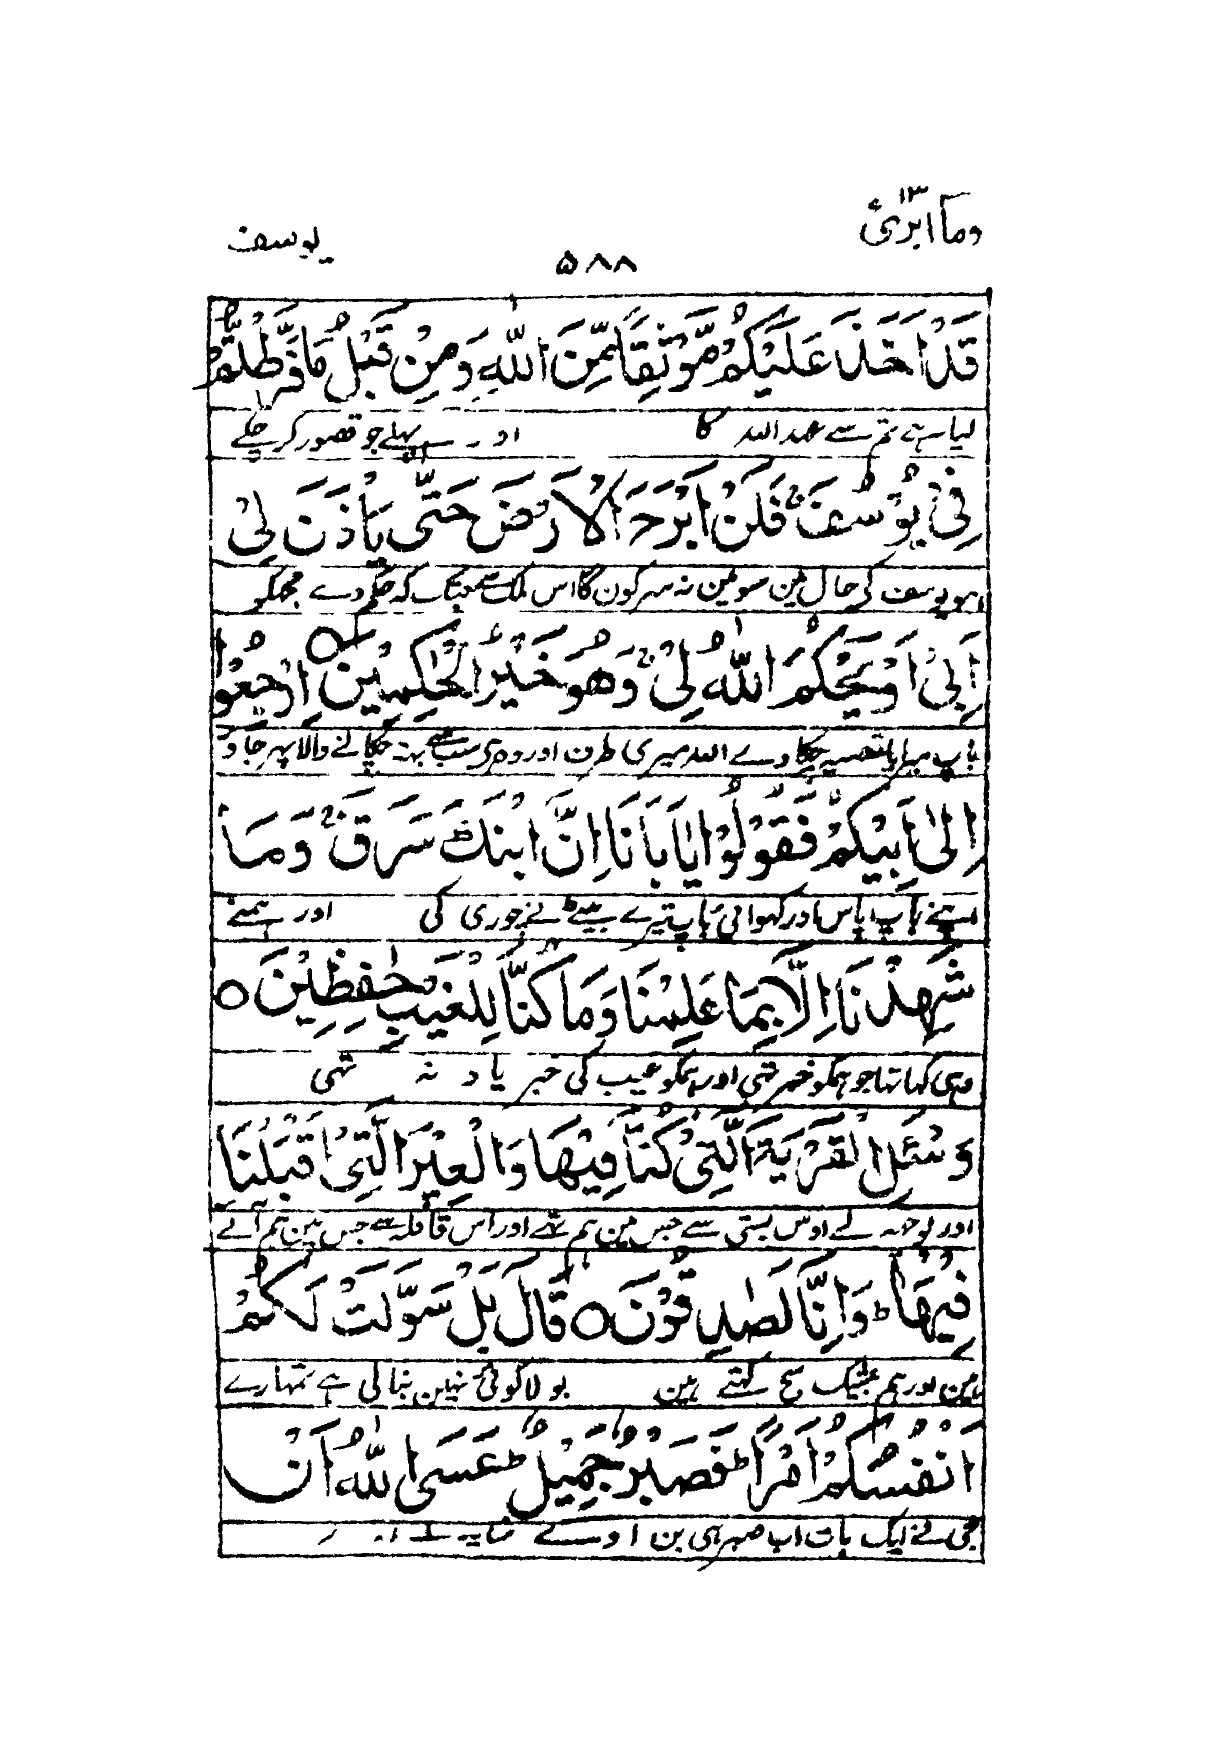 وما ابرئ ١٣
یوسف
۵۸۸
قَدْ اَخَذَ عَلَيْكُمْ مَّوْثِقًا مِّنَ اللّٰهِ وَمِنْ قَبْلُ مَا فَرَّطْتُّمْ
لیا ہے تم سے عہد اللہ کا اور پہلے جو قصور کر چکے
فِيْ يُوْسُفَ ۚ فَلَنْ اَبْرَحَ الْاَرْضَ حَتّٰى يَاْذَنَ لِيْ
ہو یوسف کی حال مین سو مین نہ سرکون گا اس ملک سے جبتک کہ حکم دے مجھکو
اَبِيْ اَوْ يَحْكُمَ اللّٰهُ لِيْ ۚ وَهُوَ خَيْرُ الْحٰكِمِيْنَ ○ اِرْجِعُوْا
باپ میرا یا قصیہ چکا دے اللہ میری طرف اور وہ ہی سب سے بہتر چکانے والا پہر جاو
اِلٰى اَبِيْكُمْ فَقُوْلُوْا يٰاَبَانَا اِنَّ ابْنَكَ سَرَقَ ۚ وَمَا
اپنے باپ پاس اور کہو ای باپ تیرے بیٹے نے چوری کی اور ہمنے
شَهِدْنَا اِلَّا بِمَا عَلِمْنَا وَمَا كُنَّا لِلْغَيْبِ حٰفِظِيْنَ ○
وہی کہا تہا جو ہمکو خبر تہی اور ہمکو غیب کی خبر یاد نہ تہی
وَسْئَلِ الْقَرْيَةَ الَّتِيْ كُنَّا فِيْهَا وَالْعِيْرَ الَّتِيْ اَقْبَلْنَا
اور پوچھہ لے اوس بستی سے جس مین ہم تہے اور اس قافلہ سے جس مین ہم آئے
فِيْهَا ؕ وَاِنَّا لَصٰدِقُوْنَ ○ قَالَ بَلْ سَوَّلَتْ لَكُمْ
ہین اور ہم بیشک سچ کہتے ہین بولا کوئی نہین بنالی ہے تمہارے
اَنْفُسُكُمْ اَمْرًا ؕ فَصَبْرٌ جَمِيْلٌ ؕ عَسَى اللّٰهُ اَنْ
جی نے ایک بات اب صبر ہی بن اوسے شاید